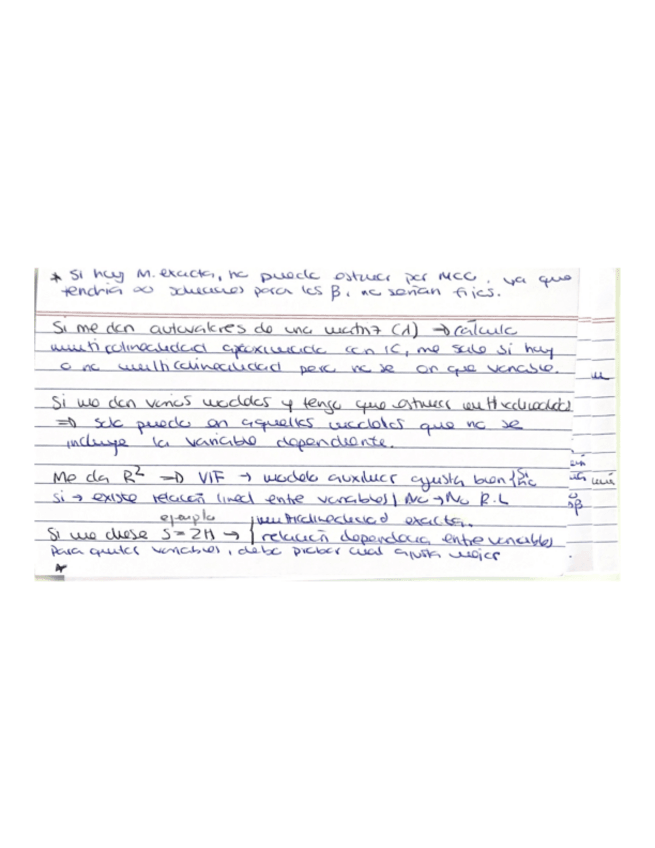 * Si hay M. exacta, no puedo estimar por MCO, ya que
tendría ∞ soluciones para los β, no serían fijos.
Si me dan autovalores de una matriz (λ) → calculo
multicolinealidad aproximada con IC, me sale si hay
o no multicolinealidad pero no se en que variable.
Si me dan varios modelos y tengo que estimar multicolinealidad
⇒ solo puedo en aquellos modelos que no se
incluye la variable dependiente.
Me da R² ⇒ VIF → modelo auxiliar ajusta bien { Si No
Si → existe relación lineal entre variables / No → No R.L
ejemplo { multicolinealidad exacta.
Si me diese S = 2H → { relación dependencia entre variables
Para quitar variables, debo probar cual ajusta mejor